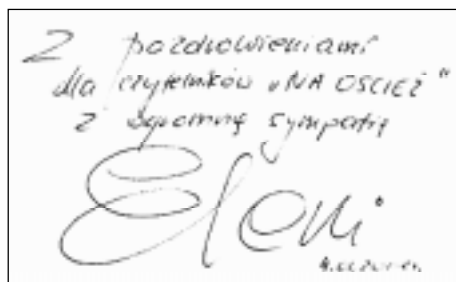 Z pozdrowieniami
dla czytelników „NA OŚCIEŻ"
z ogromną sympatią
Eleni